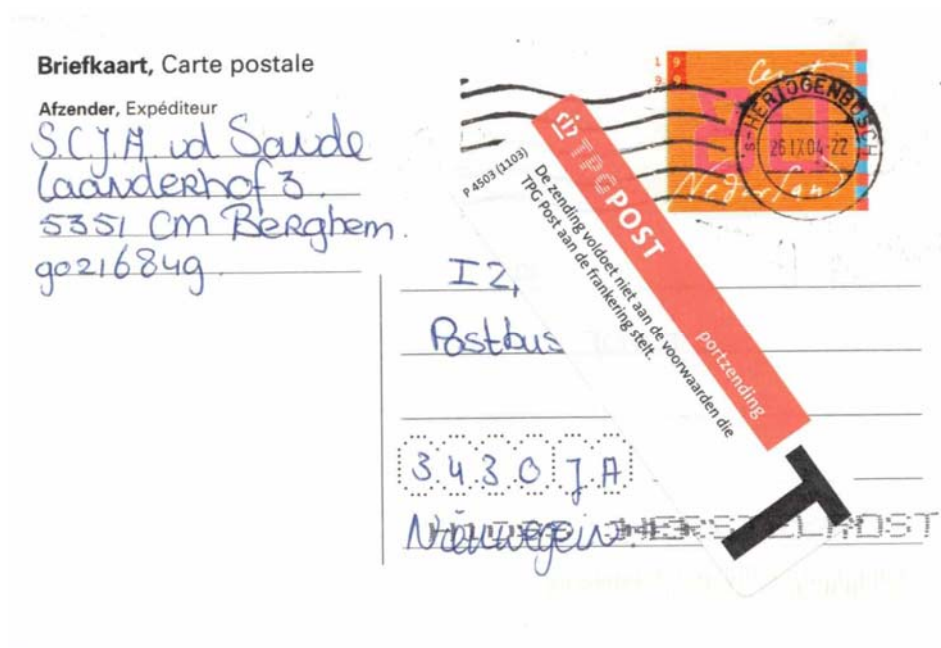 Briefkaart, Carte postale
Afzender, Expéditeur
S.C.J.A. vd Sande
Laanderhof 3.
5351 CM Berghem.
go21684g
19
99
Cent
80
Nederland
's-HERTOGENBOSCH
26 IX 04-22
TPG POST
portzending
P 4503 (1103)
De zending voldoet niet aan de voorwaarden die
TPG Post aan de frankering stelt.
T
I2,
Postbus
3430 JA
Nieuwegein.